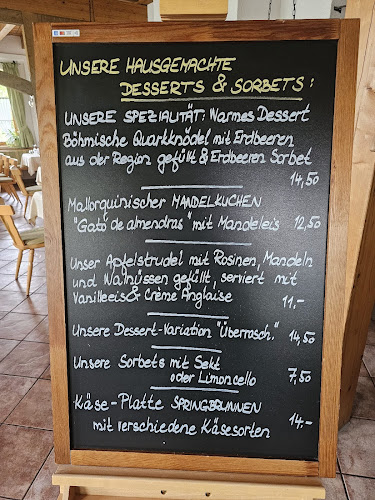 UNSERE HAUSGEMACHTE
DESSERTS & SORBETS :
UNSERE SPEZIALITÄT: Warmes Dessert
Böhmische Quarkknödel mit Erdbeeren
aus der Region gefüllt & Erdbeeren Sorbet
14,50
Mallorquinischer MANDELKUCHEN
"Gató de almendras" mit Mandeleis 12,50
Unser Apfelstrudel mit Rosinen, Mandeln
und Walnüssen gefüllt, serviert mit
Vanilleeis & Crème Anglaise 11,-
Unsere Dessert-Variation "Überrasch." 14,50
Unsere Sorbets mit Sekt
oder Limoncello 7,50
Käse-Platte SPRINGBRUNNEN 14.-
mit verschiedene Käsesorten